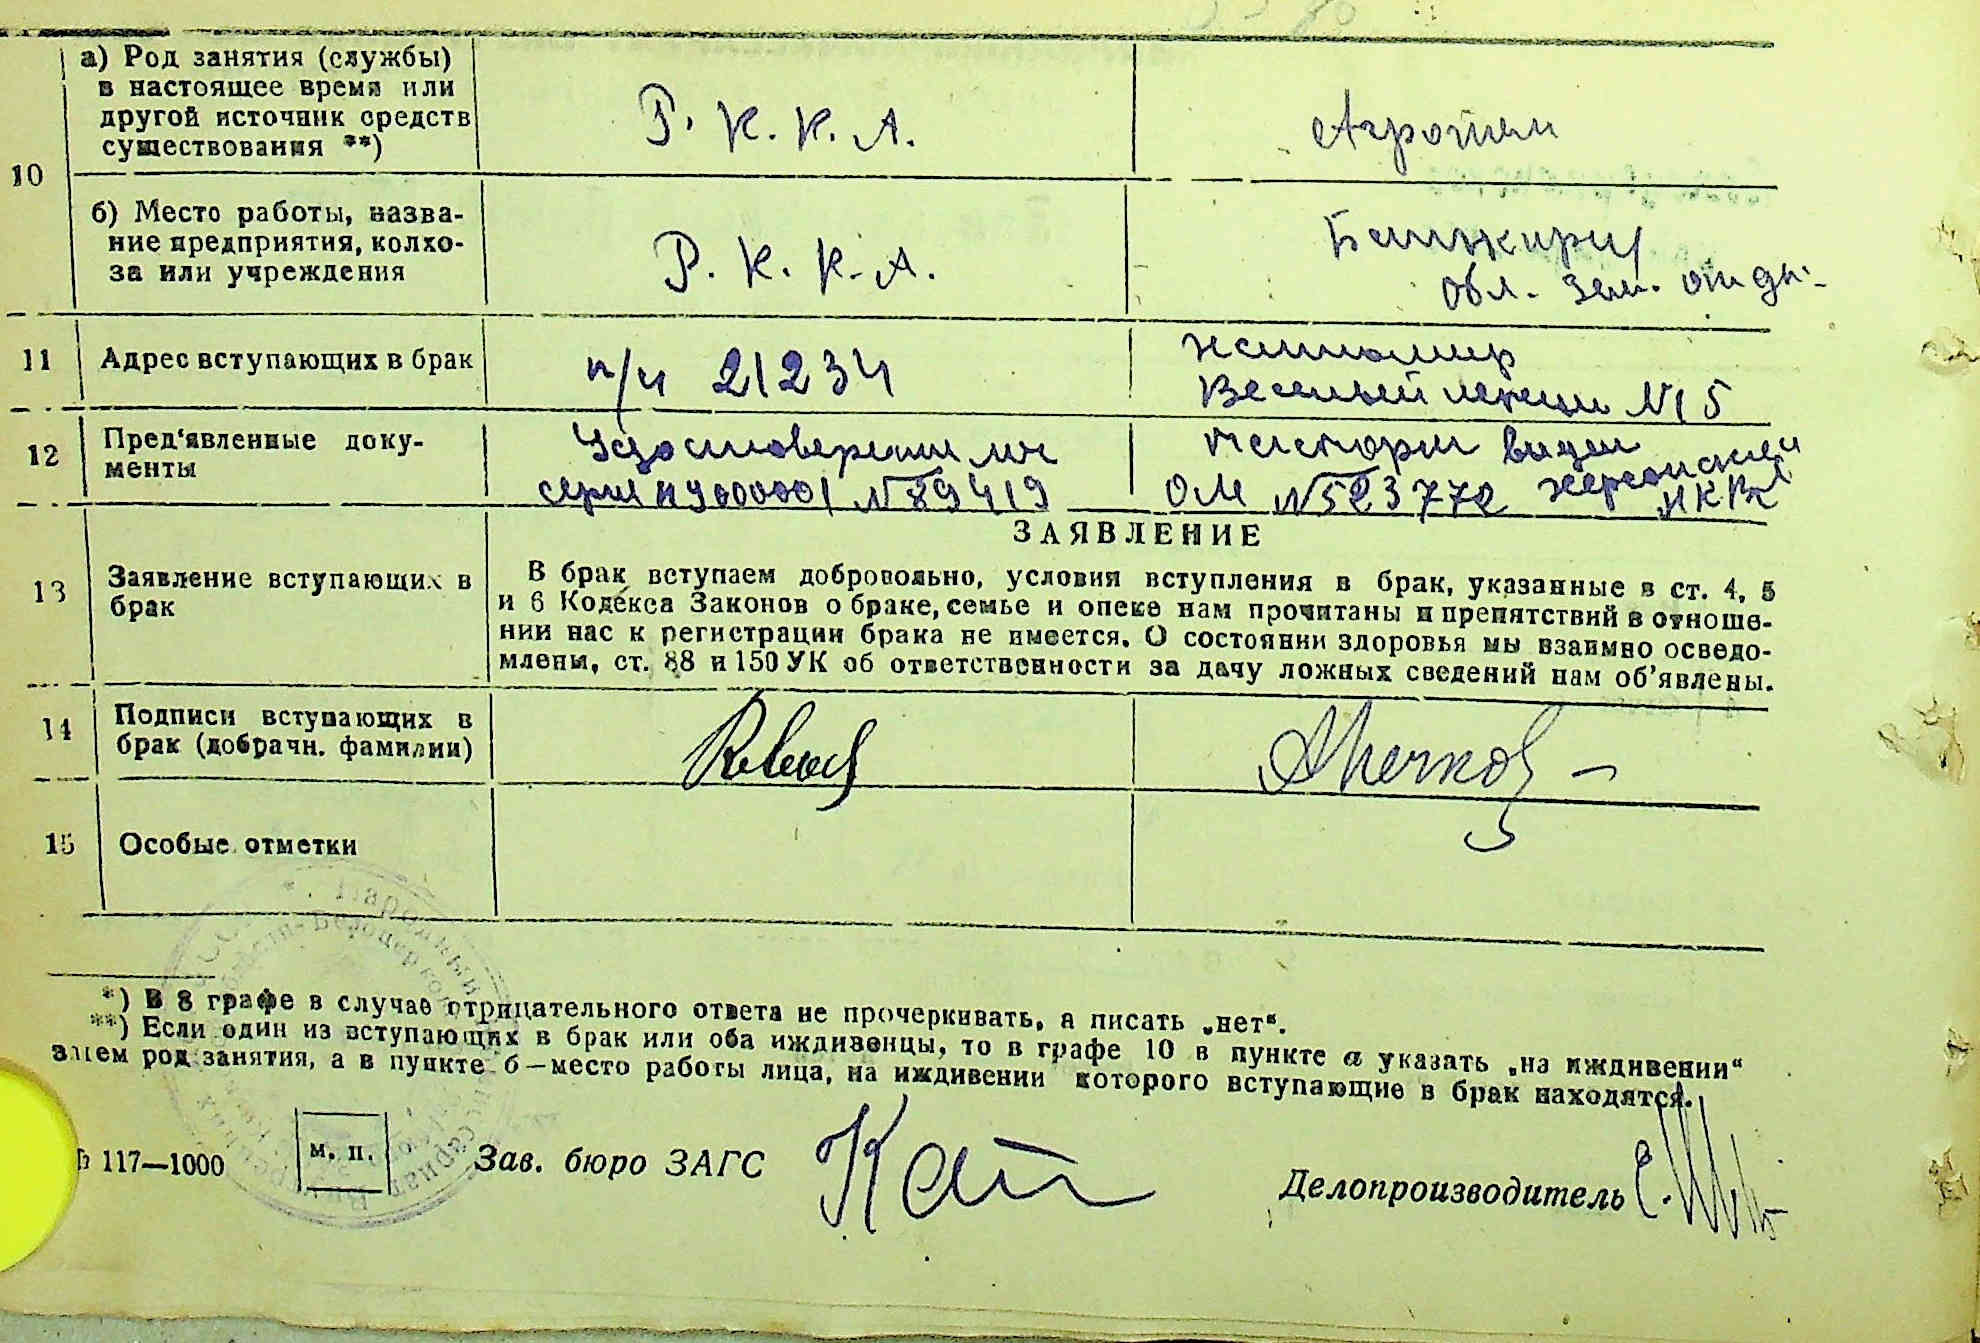 10
а) Род занятия (службы)
в настоящее время или
другой источник средств
существования **)
Р. К. К. А.
Агроном
б) Место работы, назва-
ние предприятия, колхо-
за или учреждения
Р. К. К. А.
обл. зем. отдел
11
Адрес вступающих в брак
п/ч 21234
Житомир
№ 15
12
Пред'явленные доку-
менты
Удостоверение лич
серия № 89419
Паспорт выдан
ОМ № 523772 Херсонский
НКВД
ЗАЯВЛЕНИЕ
13
Заявление вступающих в
брак
В брак вступаем добровольно, условия вступления в брак, указанные в ст. 4, 5
и 6 Кодекса Законов о браке, семье и опеке нам прочитаны и препятствий в отноше-
нии нас к регистрации брака не имеется. О состоянии здоровья мы взаимно осведо-
млены, ст. 88 и 150 УК об ответственности за дачу ложных сведений нам об'явлены.
14
Подписи вступающих в
брак (добрачн. фамилии)
15
Особые отметки
*) В 8 графе в случае отрицательного ответа не прочеркивать, а писать „нет“.
**) Если один из вступающих в брак или оба иждивенцы, то в графе 10 в пункте а указать „на иждивении“
затем род занятия, а в пункте б—место работы лица, на иждивении которого вступающие в брак находятся.
№ 117—1000
м. п.
Зав. бюро ЗАГС
Делопроизводитель